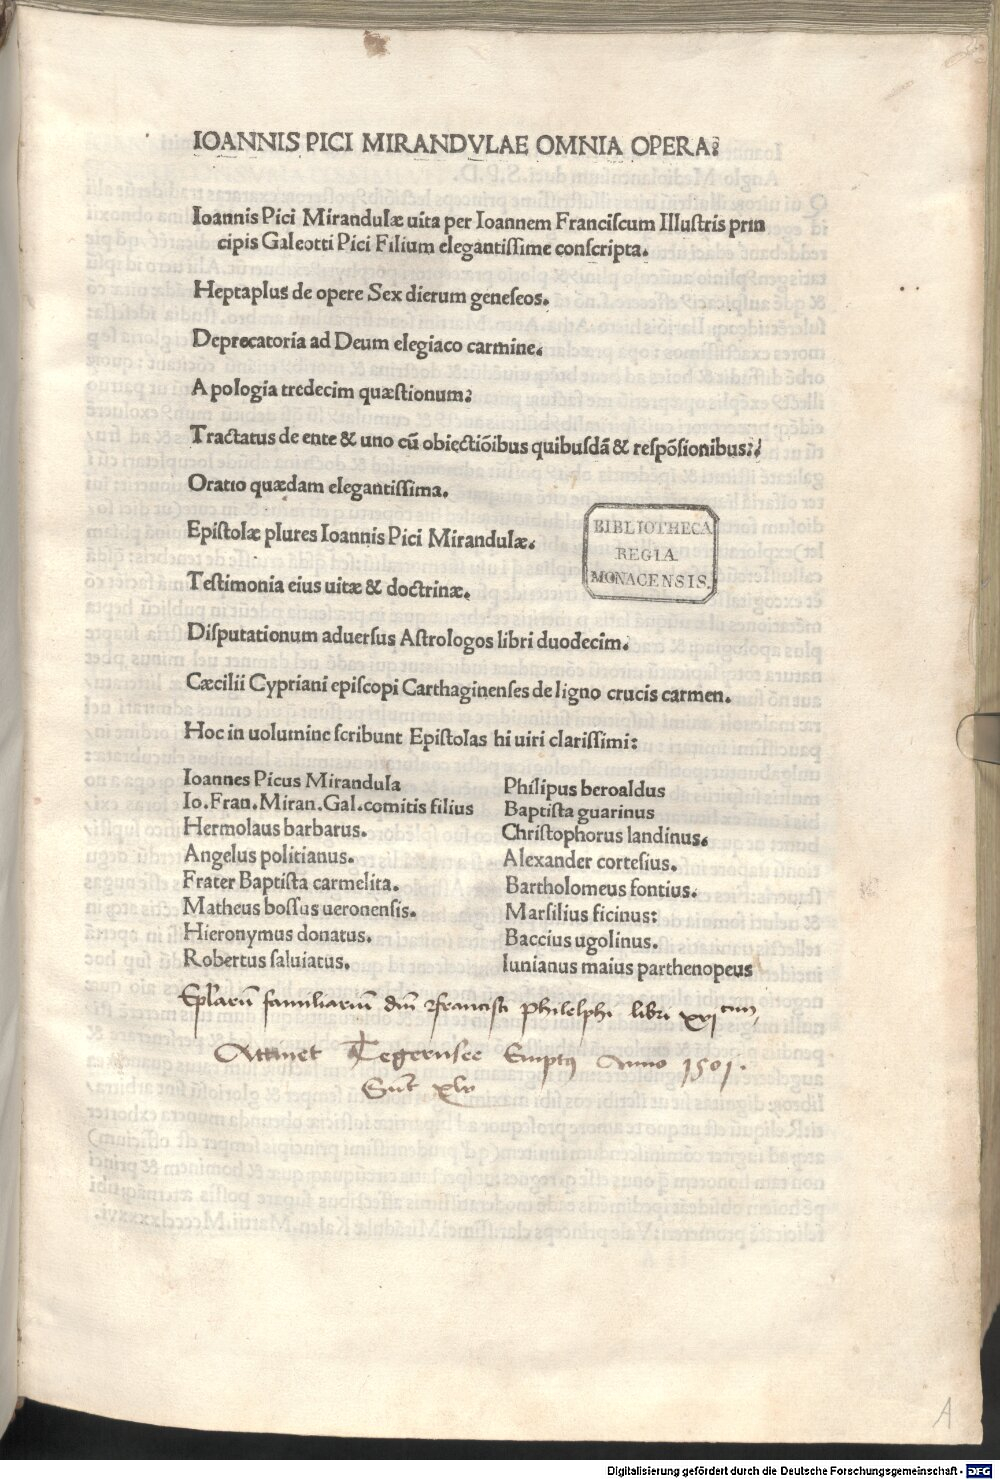 IOANNIS PICI MIRANDVLAE OMNIA OPERA:
Ioannis Pici Mirandulæ uita per Ioannem Franciſcum Illuſtris prin
cipis Galeotti Pici Filium elegantiſſime conſcripta.
Heptaplus de opere Sex dierum geneſeos.
Deprecatoria ad Deum elegiaco carmine.
Apologia tredecim quæſtionum:
Tractatus de ente & uno cū obiectiōibus quibuſdā & reſpōſionibus:
Oratio quædam elegantiſſima.
Epiſtolæ plures Ioannis Pici Mirandulæ.
BIBLIOTHECA
REGIA
MONACENSIS.
Teſtimonia eius uitæ & doctrinæ.
Diſputationum aduerſus Aſtrologos libri duodecim.
Cæcilii Cypriani epiſcopi Carthaginenſes de ligno crucis carmen.
Hoc in uolumine ſcribunt Epiſtolas hi uiri clariſſimi:
Ioannes Picus Mirandula
Io.Fran.Miran.Gal.comitis filius
Hermolaus barbarus.
Angelus politianus.
Frater Baptiſta carmelita.
Matheus boſſus ueronenſis.
Hieronymus donatus.
Robertus ſaluiatus.
Philipus beroaldus
Baptiſta guarinus
Chriſtophorus landinus.
Alexander corteſius.
Bartholomeus fontius.
Marſilius ficinus:
Baccius ugolinus.
Iunianus maius parthenopeus
familiariū francisci Philelphi libri
Attinet Tegernsee Anno 1501.
A
Digitalisierung gefördert durch die Deutsche Forschungsgemeinschaft - DFG